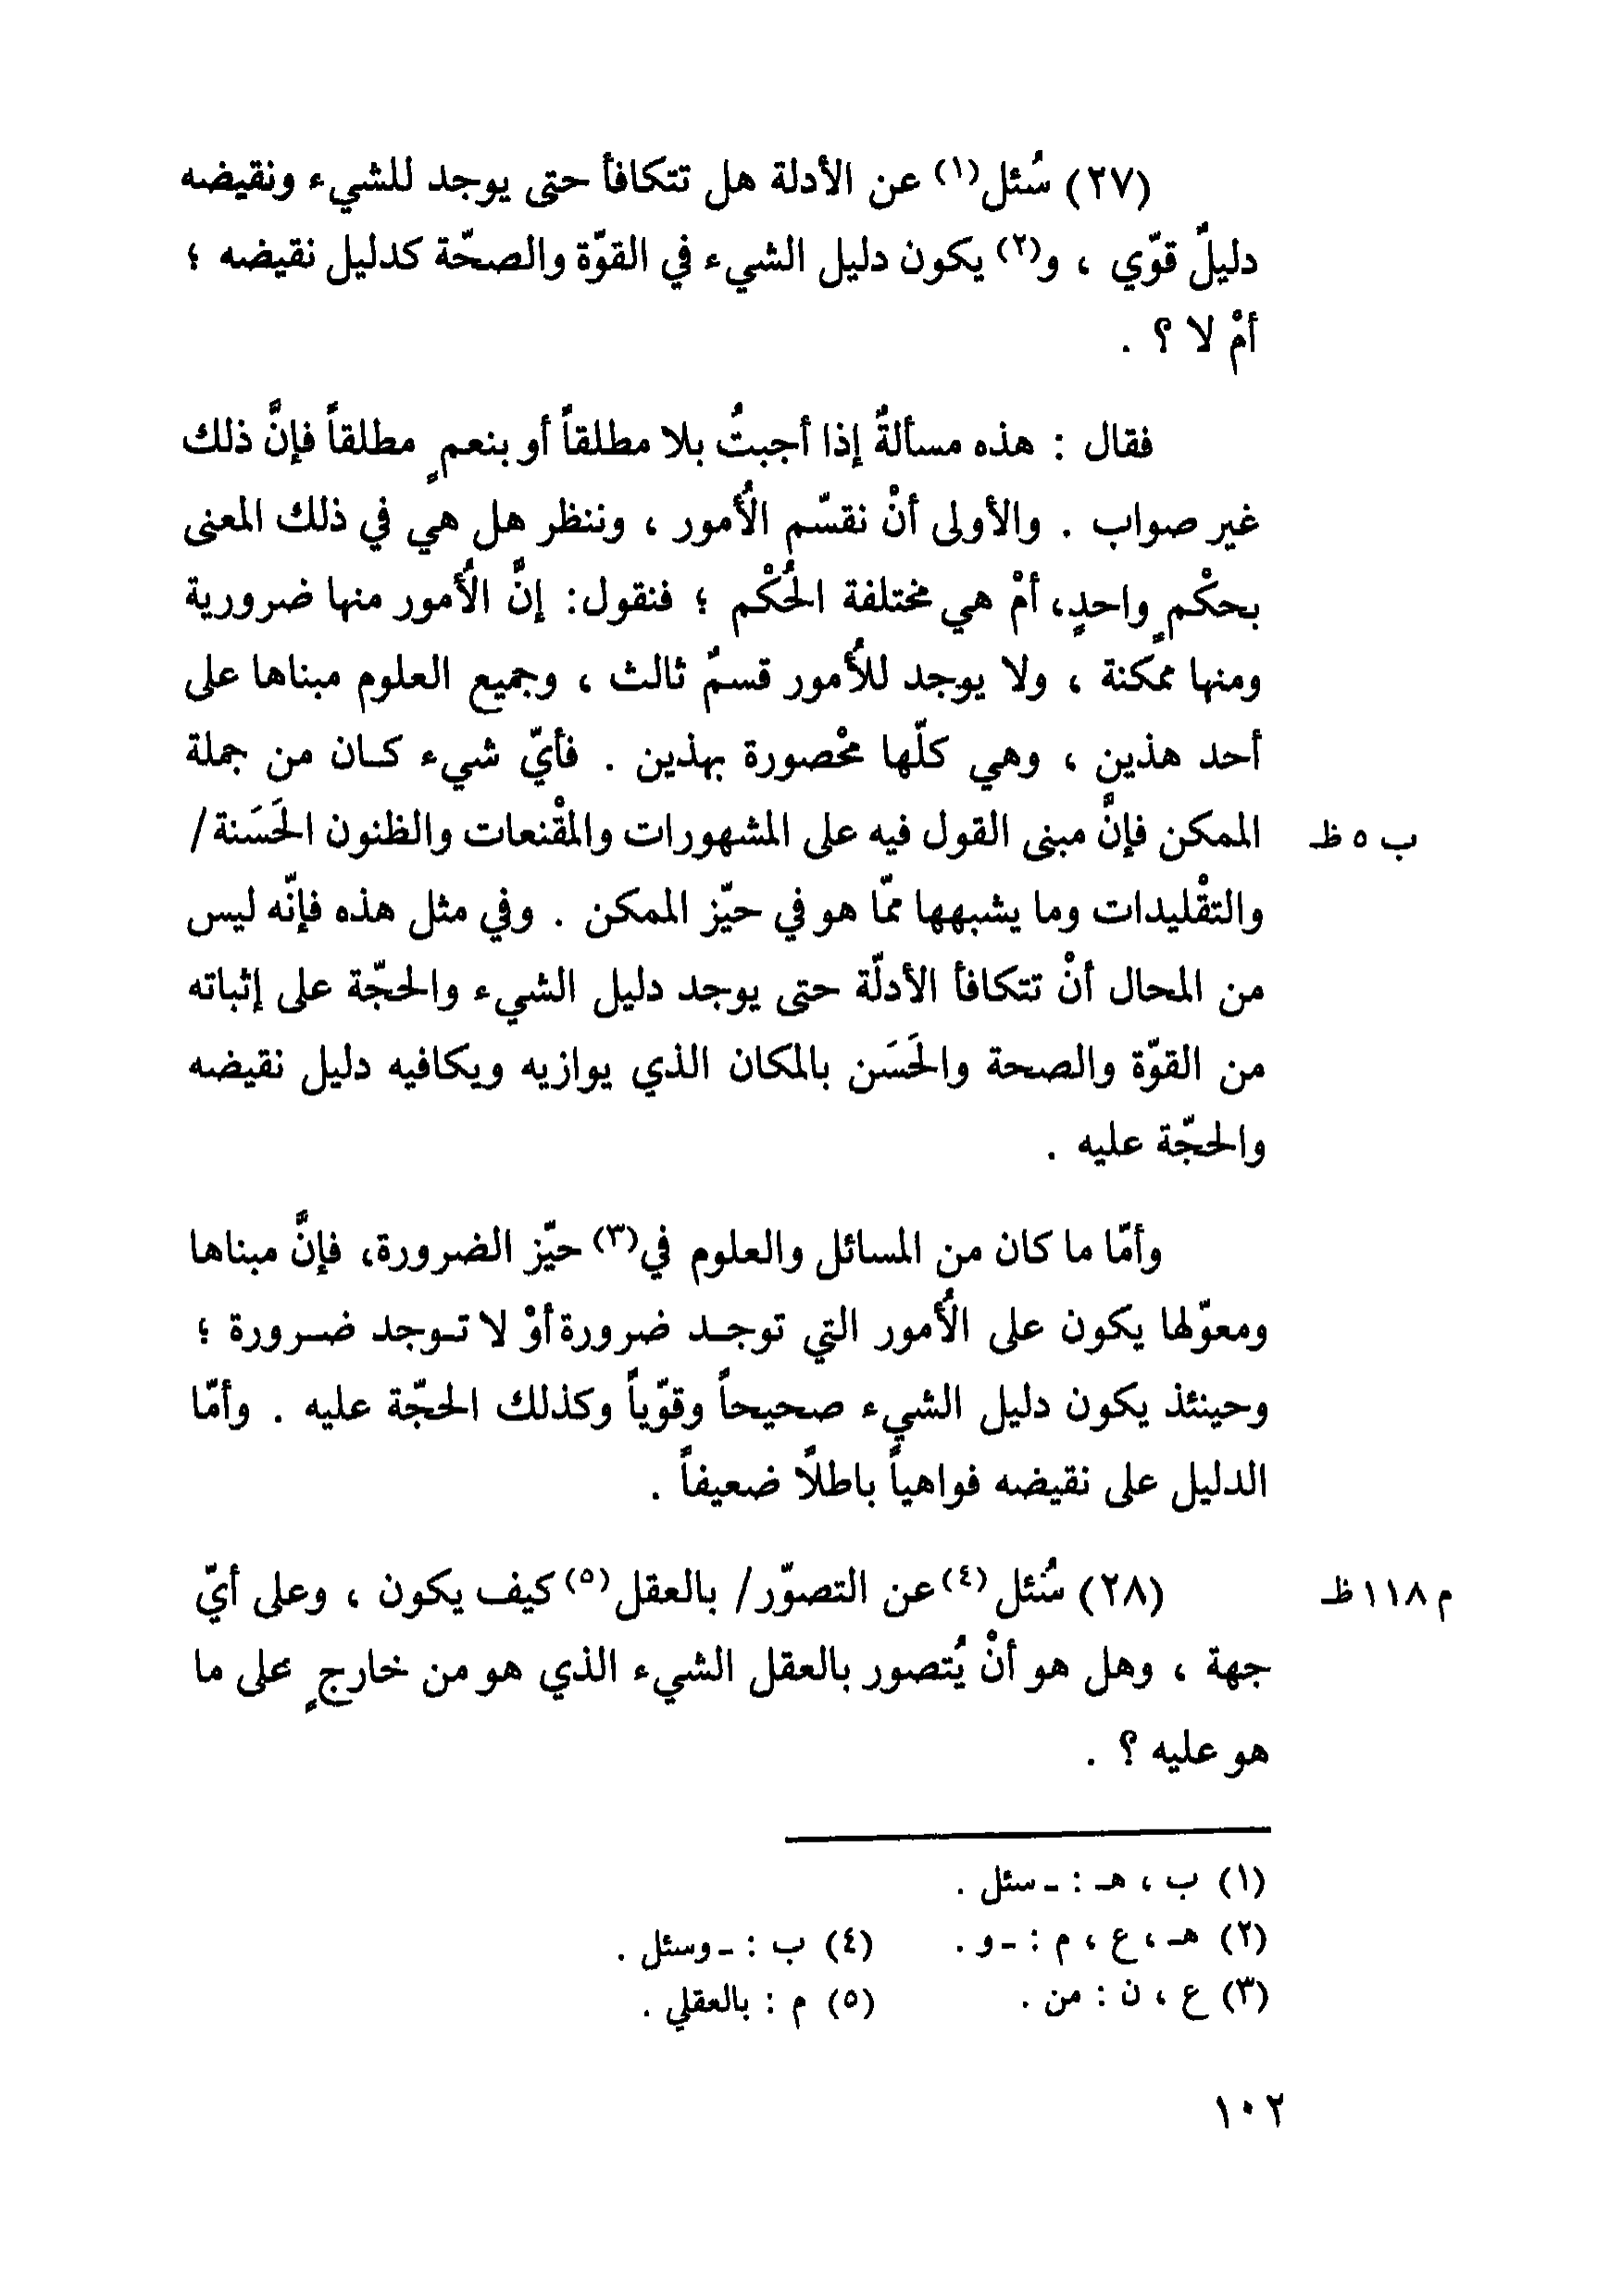 (٢٧) سُئل(١) عن الأدلة هل تتكافأ حتى يوجد للشيء ونقيضه
دليلٌ قوّي ، و(٢) يكون دليل الشيء في القوّة والصحّة كدليل نقيضه ؛
أمْ لا ؟ .
فقال : هذه مسألةٌ إذا أجبتُ بلا مطلقاً أو بنعمٍ مطلقاً فإنَّ ذلك
غير صواب . والأولى أنْ نقسّم الأُمور ، وننظر هل هي في ذلك المعنى
بحكْمٍ واحدٍ، أمْ هي مختلفة الحُكْم ؛ فنقول: إنَّ الأُمور منها ضرورية
ومنها ممكنة ، ولا يوجد للأُمور قسمٌ ثالث ، وجميع العلوم مبناها على
أحد هذين ، وهي كلّها محْصورة بهذين . فأيّ شيء كـان من جملة
الممكن فإنَّ مبنى القول فيه على المشهورات والمقْنعات والظنون الحَسَنة/ ب ٥ ظـ
والتقْليدات وما يشبهها ممّا هو في حيّز الممكن . وفي مثل هذه فإنّه ليس
من المحال أنْ تتكافأ الأدلّة حتى يوجد دليل الشيء والحجّة على إثباته
من القوّة والصحة والحَسَن بالمكان الذي يوازيه ويكافيه دليل نقيضه
والحجّة عليه .
وأمّا ما كان من المسائل والعلوم في(٣) حيّز الضرورة، فإنَّ مبناها
ومعوّلها يكون على الأُمور التي توجـد ضرورة أوْ لا تـوجد ضـرورة ؛
وحينئذ يكون دليل الشيء صحيحاً وقوّياً وكذلك الحجّة عليه . وأمّا
الدليل على نقيضه فواهياً باطلًا ضعيفاً .
(٢٨) سُئل(٤) عن التصوّر/ بالعقل(٥) كيف يكون ، وعلى أيّ م ١١٨ ظـ
جهة ، وهل هو أنْ يُتصور بالعقل الشيء الذي هو من خارجٍ على ما
هو عليه ؟ .
(١) ب ، هـ : ـ سئل .
(٢) هـ ، ع ، م : ـ و . (٤) ب : ـ وسئل .
(٣) ع ، ن : من . (٥) م : بالعقلي .
١٠٢